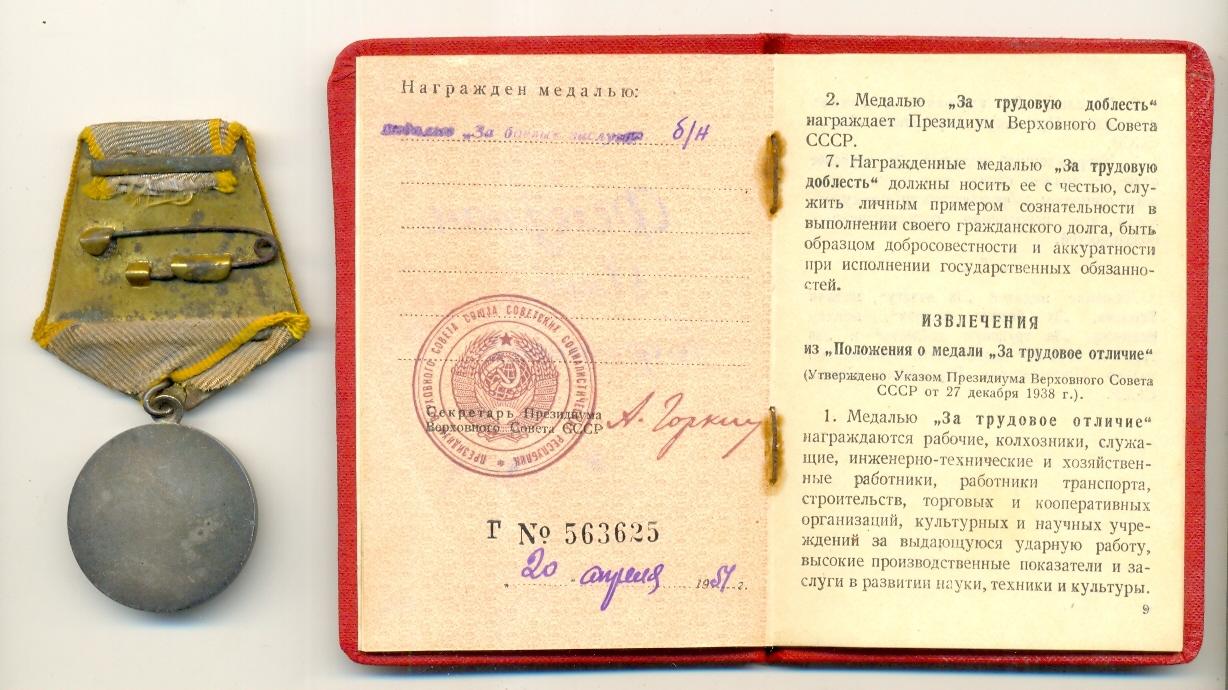 Награжден медалью:
медалью „За боевые заслуги б/н
ПРЕЗИДИУМ ВЕРХОВНОГО СОВЕТА СОЮЗА СОВЕТСКИХ СОЦИАЛИСТИЧЕСКИХ РЕСПУБЛИК
Секретарь Президиума
Верховного Совета СССР А. Горкин
Г № 563625
„20 апреля 1951 г.
2. Медалью „За трудовую доблесть“
награждает Президиум Верховного Совета
СССР.
7. Награжденные медалью „За трудовую
доблесть“ должны носить ее с честью, слу-
жить личным примером сознательности в
выполнении своего гражданского долга, быть
образцом добросовестности и аккуратности
при исполнении государственных обязанно-
стей.
ИЗВЛЕЧЕНИЯ
из „Положения о медали „За трудовое отличие“
(Утверждено Указом Президиума Верховного Совета
СССР от 27 декабря 1938 г.).
1. Медалью „За трудовое отличие“
награждаются рабочие, колхозники, служа-
щие, инженерно-технические и хозяйствен-
ные работники, работники транспорта,
строительств, торговых и кооперативных
организаций, культурных и научных учре-
ждений за выдающуюся ударную работу,
высокие производственные показатели и за-
слуги в развитии науки, техники и культуры.
9